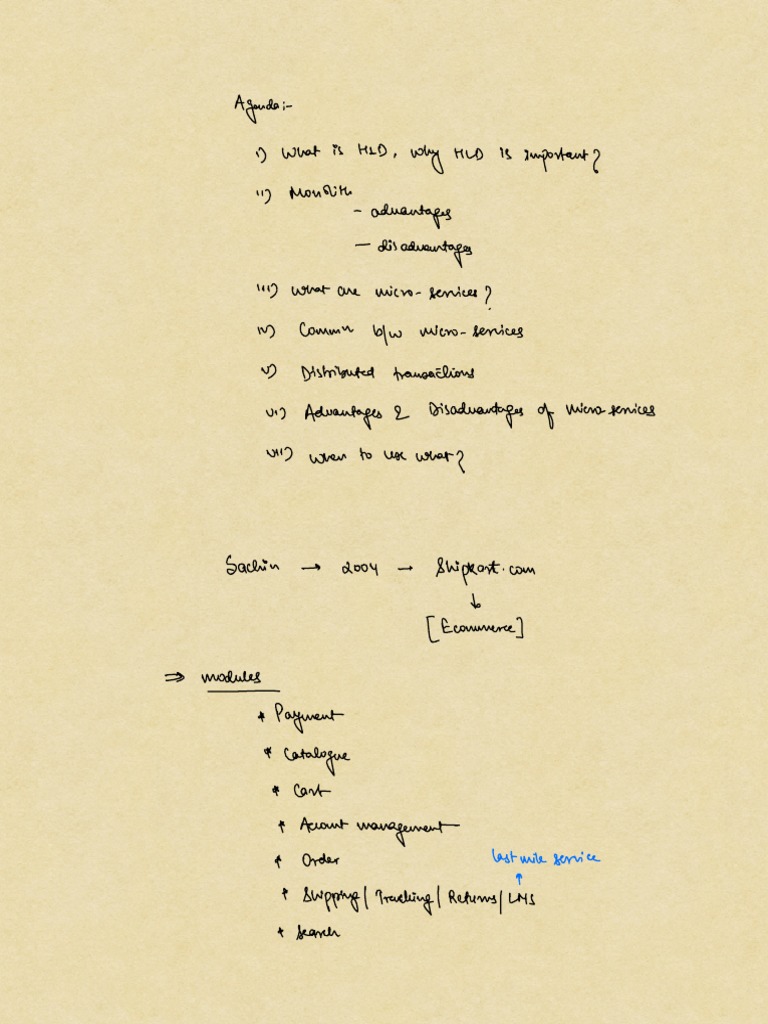 Agenda:-
i) What is HLD, why HLD is important?
ii) Monolith
- advantages
- disadvantages
iii) What are micro-services?
iv) Commn b/w micro-services
v) Distributed transactions
vi) Advantages & Disadvantages of micro services
vii) When to use what?
Sachin → 2004 → Shipkart.com
↓
[Ecommerce]
⇒ modules
* Payment
* Catalogue
* Cart
* Account management
* Order
last mile service
↑
* Shipping/Tracking/Returns/LMS
* Search